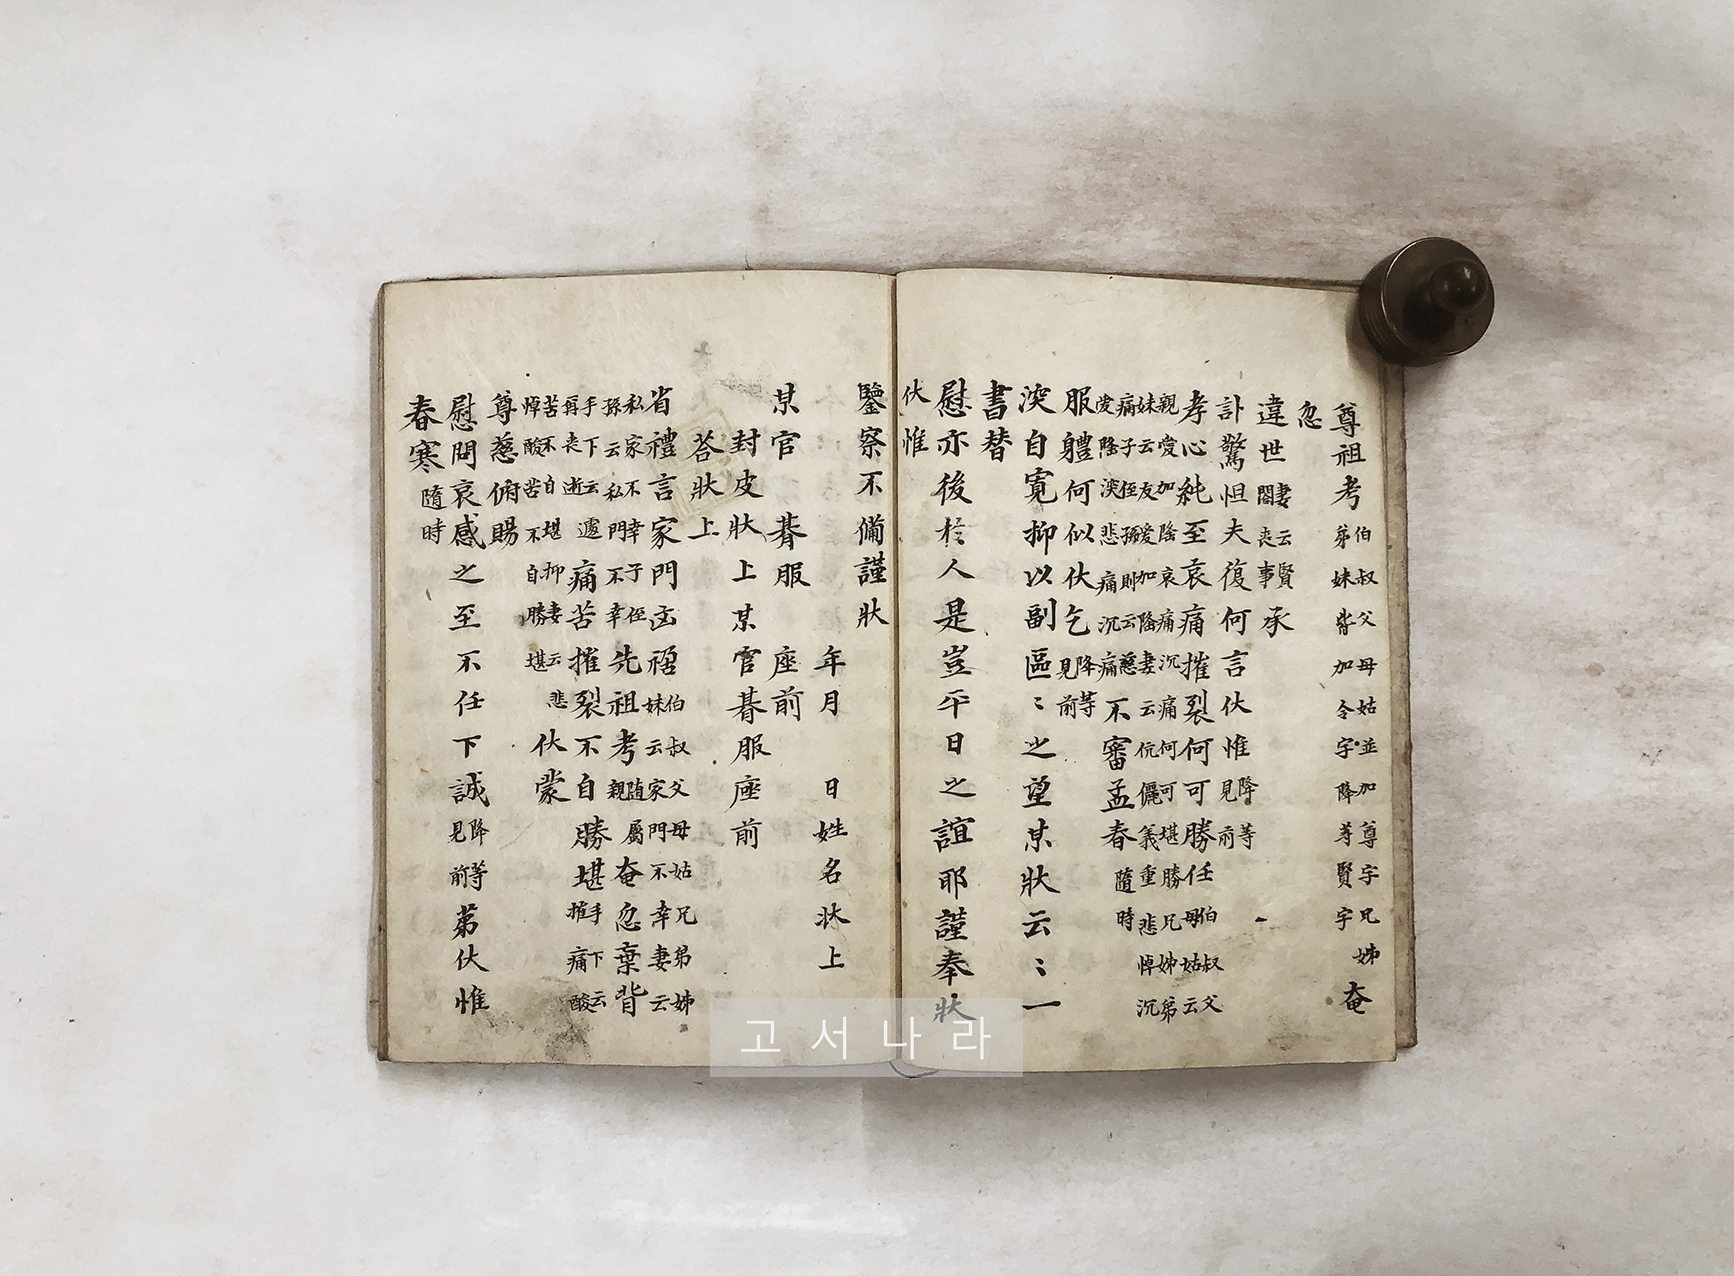 尊祖考伯叔父母姑並加尊字兄姊弟妹皆加令字降等賢字奄
忽
違世妻云賢閤喪事承
訃驚怛夫復何言伏惟降等見前
孝心純至哀痛摧裂何可勝任伯叔父母姑云
親愛加隆哀痛沉痛何可堪勝兄姊弟妹云友愛加隆妻云伉儷義重悲悼沉
痛子侄孫則云慈愛隆深悲痛沉痛不審孟春隨時
服軆何似伏乞降等見前
深自寬抑以副區〻之望某狀云〻一
書替
慰亦後於人是豈平日之誼耶謹奉狀
伏惟
鑒察不備謹狀
年月 日姓名狀上
某官 朞服 座前
封皮狀上某官朞服座前
答狀上
省禮言家門凶禍伯叔父母姑兄弟姊妹云家門不幸妻云
私家不幸子侄孫云私門不幸先祖考隨親屬奄忽棄背
手下云遽再喪逝痛苦摧裂不自勝堪手下云摧痛酸
苦不自堪抑妻云悲悼酸苦不自勝堪伏蒙
尊慈俯賜
慰問哀感之至不任下誠降等見前弟伏惟
春寒隨時
고서나라